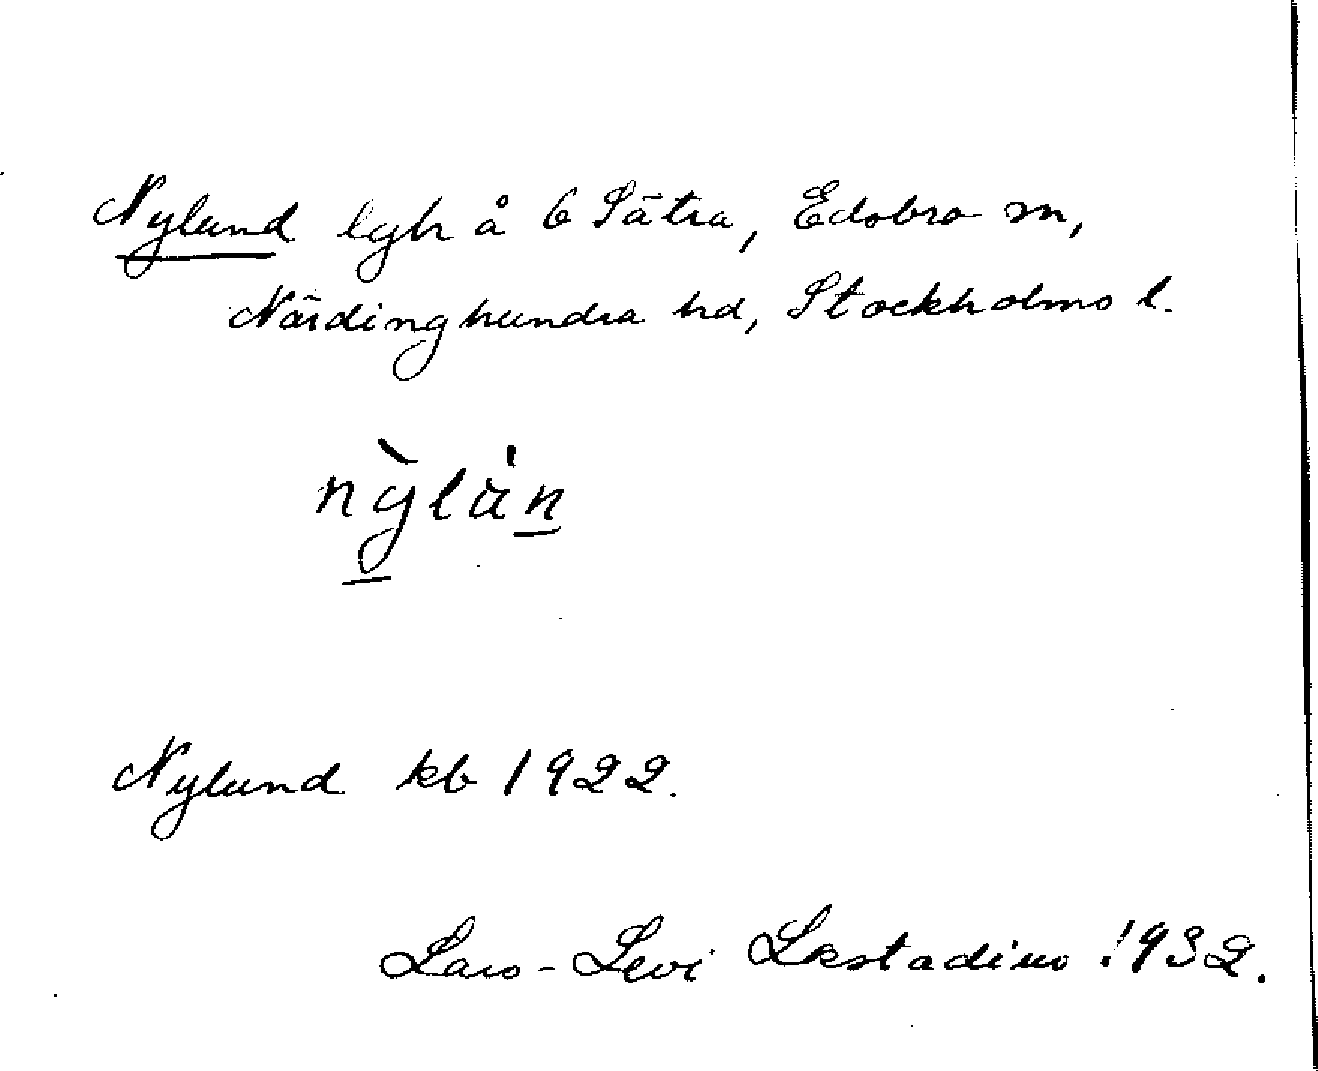 Nylund lgh å 6 Sätra, Edsbro sn,
Närdinghundra hd, Stockholms l.
nỳlȧn
Nylund kb 1922.
Lars-Levi Læstadius 1932.